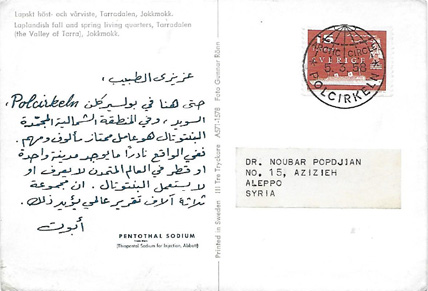 Lapskt höst- och vårviste, Tarradalen, Jokkmokk.
Laplandish fall and spring living quarters, Tarradalen
(the Valley of Tarra), Jokkmokk.
عزيزى الطبيب،
حتى هنا في بولسيركلن Polcirkeln
السويد، وفي المنطقة الشمالية المجمّدة
البنتوتال هو عامل ممتاز مألوف ومهم.
ففي الواقع نادرًا ما يوجد مدينة واحدة
او قطر في العالم المتمدن لا يعرف او
لا يستعمل البنتوتال. ان مجموعة
ثلاثة آلاف تقرير عالمي يؤيد ذلك.
أبوت
PENTOTHAL SODIUM
(Thiopental Sodium for Injection, Abbott)
Printed in Sweden III Tre Tryckare A571-1578 Foto Gunnar Rönn
15
SVERIGE
ARCTIC CIRCLE
5.3.58
POLCIRKELN
DR. NOUBAR POPDJIAN
NO. 15, AZIZIEH
ALEPPO
SYRIA